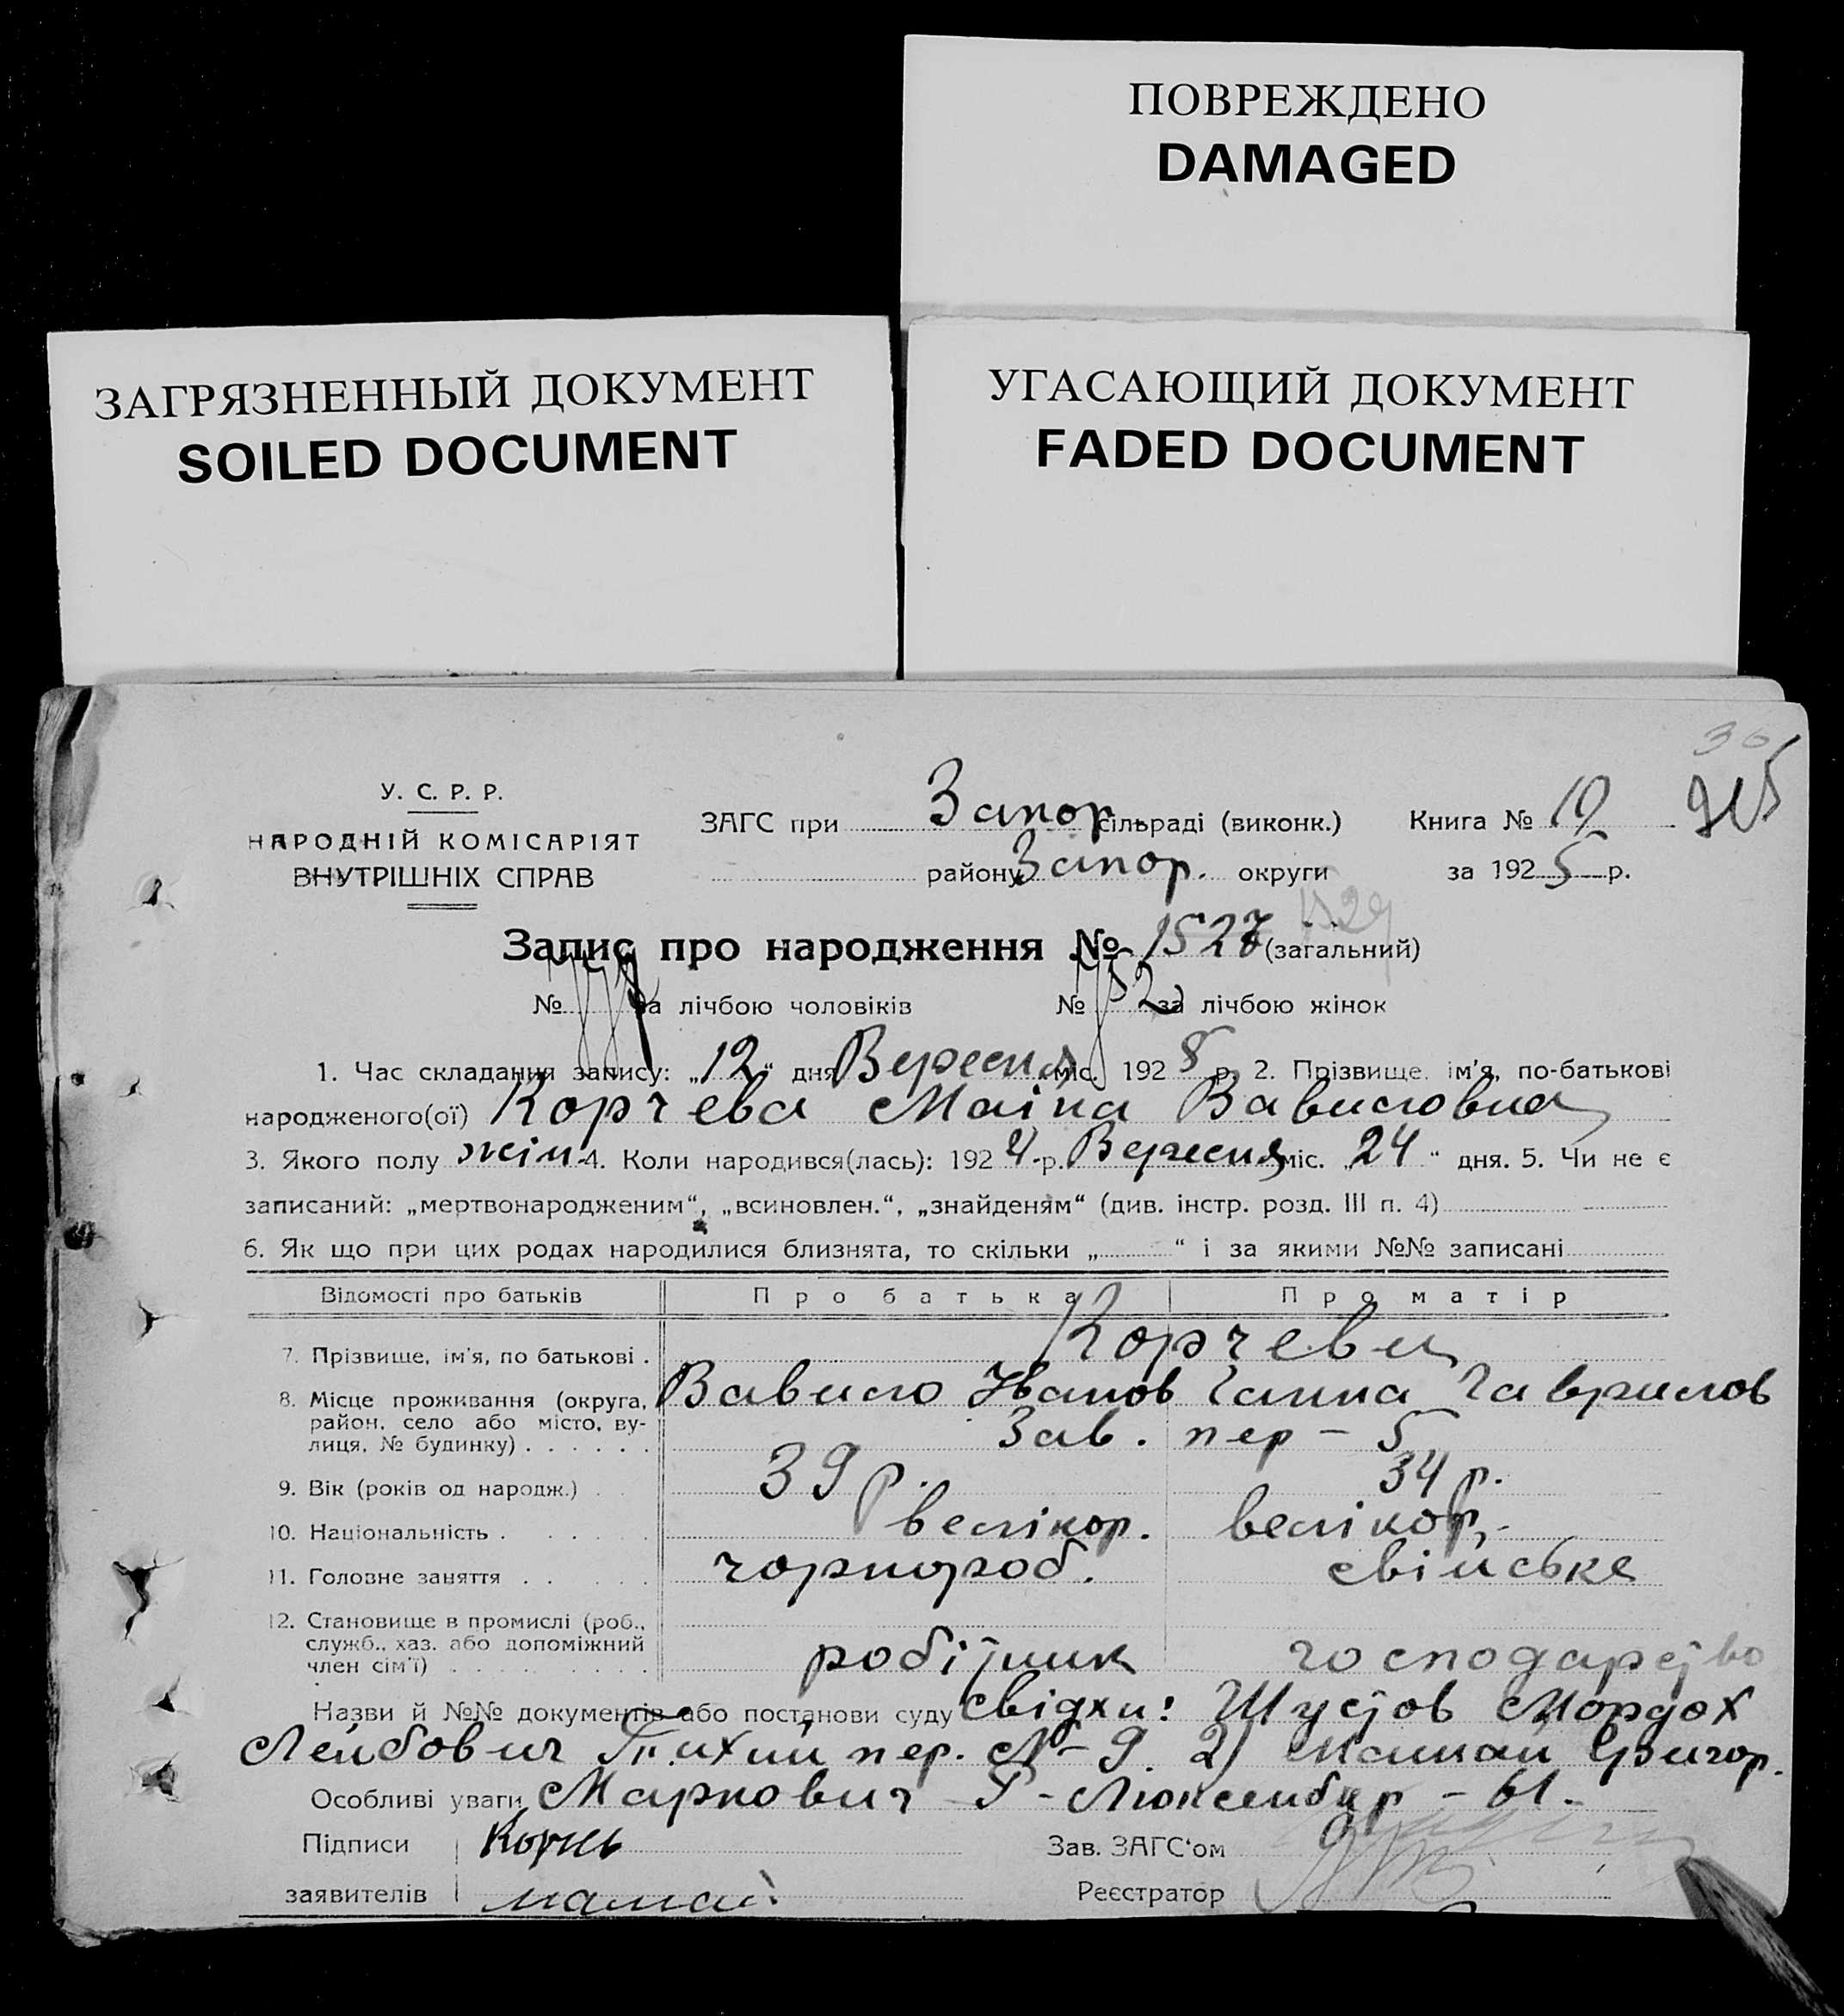 ПОВРЕЖДЕНО
DAMAGED
ЗАГРЯЗНЕННЫЙ ДОКУМЕНТ
SOILED DOCUMENT
УГАСАЮЩИЙ ДОКУМЕНТ
FADED DOCUMENT
У. С. Р. Р.
НАРОДНІЙ КОМІСАРІЯТ
ВНУТРІШНІХ СПРАВ
ЗАГС при Запор. сільраді (виконк.) Книга № 10
району Запор. округи за 1925 р.
Запис про народження № 1527 (загальний) 1529
№ за лічбою чоловіків № 752 за лічбою жінок
1. Час складання запису: „12" дня Вересня міс. 1925 р. 2. Прізвище, ім'я, по-батькові
народженого(ої) Корчева Маіна Вавиловна
3. Якого полу жін. 4. Коли народився(лась): 1924 р. Вересня міс. „24" дня. 5. Чи не є
записаний: „мертвонародженим", „всиновлен.", „знайденям" (див. інстр. розд. III п. 4)
6. Як що при цих родах народилися близнята, то скільки „ " і за якими №№ записані
Відомості про батьків Про батька Про матір
7. Прізвище, ім'я, по батькові . Корчеви
8. Місце проживання (округа, Вавило Іванов Ганна Гаврилов
район, село або місто, ву-
лиця, № будинку) . . . . . . Зав. пер – 5
9. Вік (років од народж.) . . 39 р. 34 р.
10. Національність . . . . . велікор. велікор.
11. Головне заняття . . . . . чорнороб. свійське
12. Становище в промислі (роб.,
служб., хаз. або допоміжний
член сім'ї) . . . . . . . . . робітник господарство
Назви й №№ документів або постанови суду Свідки: Шустов Мордох
Лейбович Тихий пер. № 9. 2) Мамай Григор.
Особливі уваги Маркович Р-Люксембур – 61.
Підписи Зав. ЗАГС'ом
заявителів Мамай Реєстратор